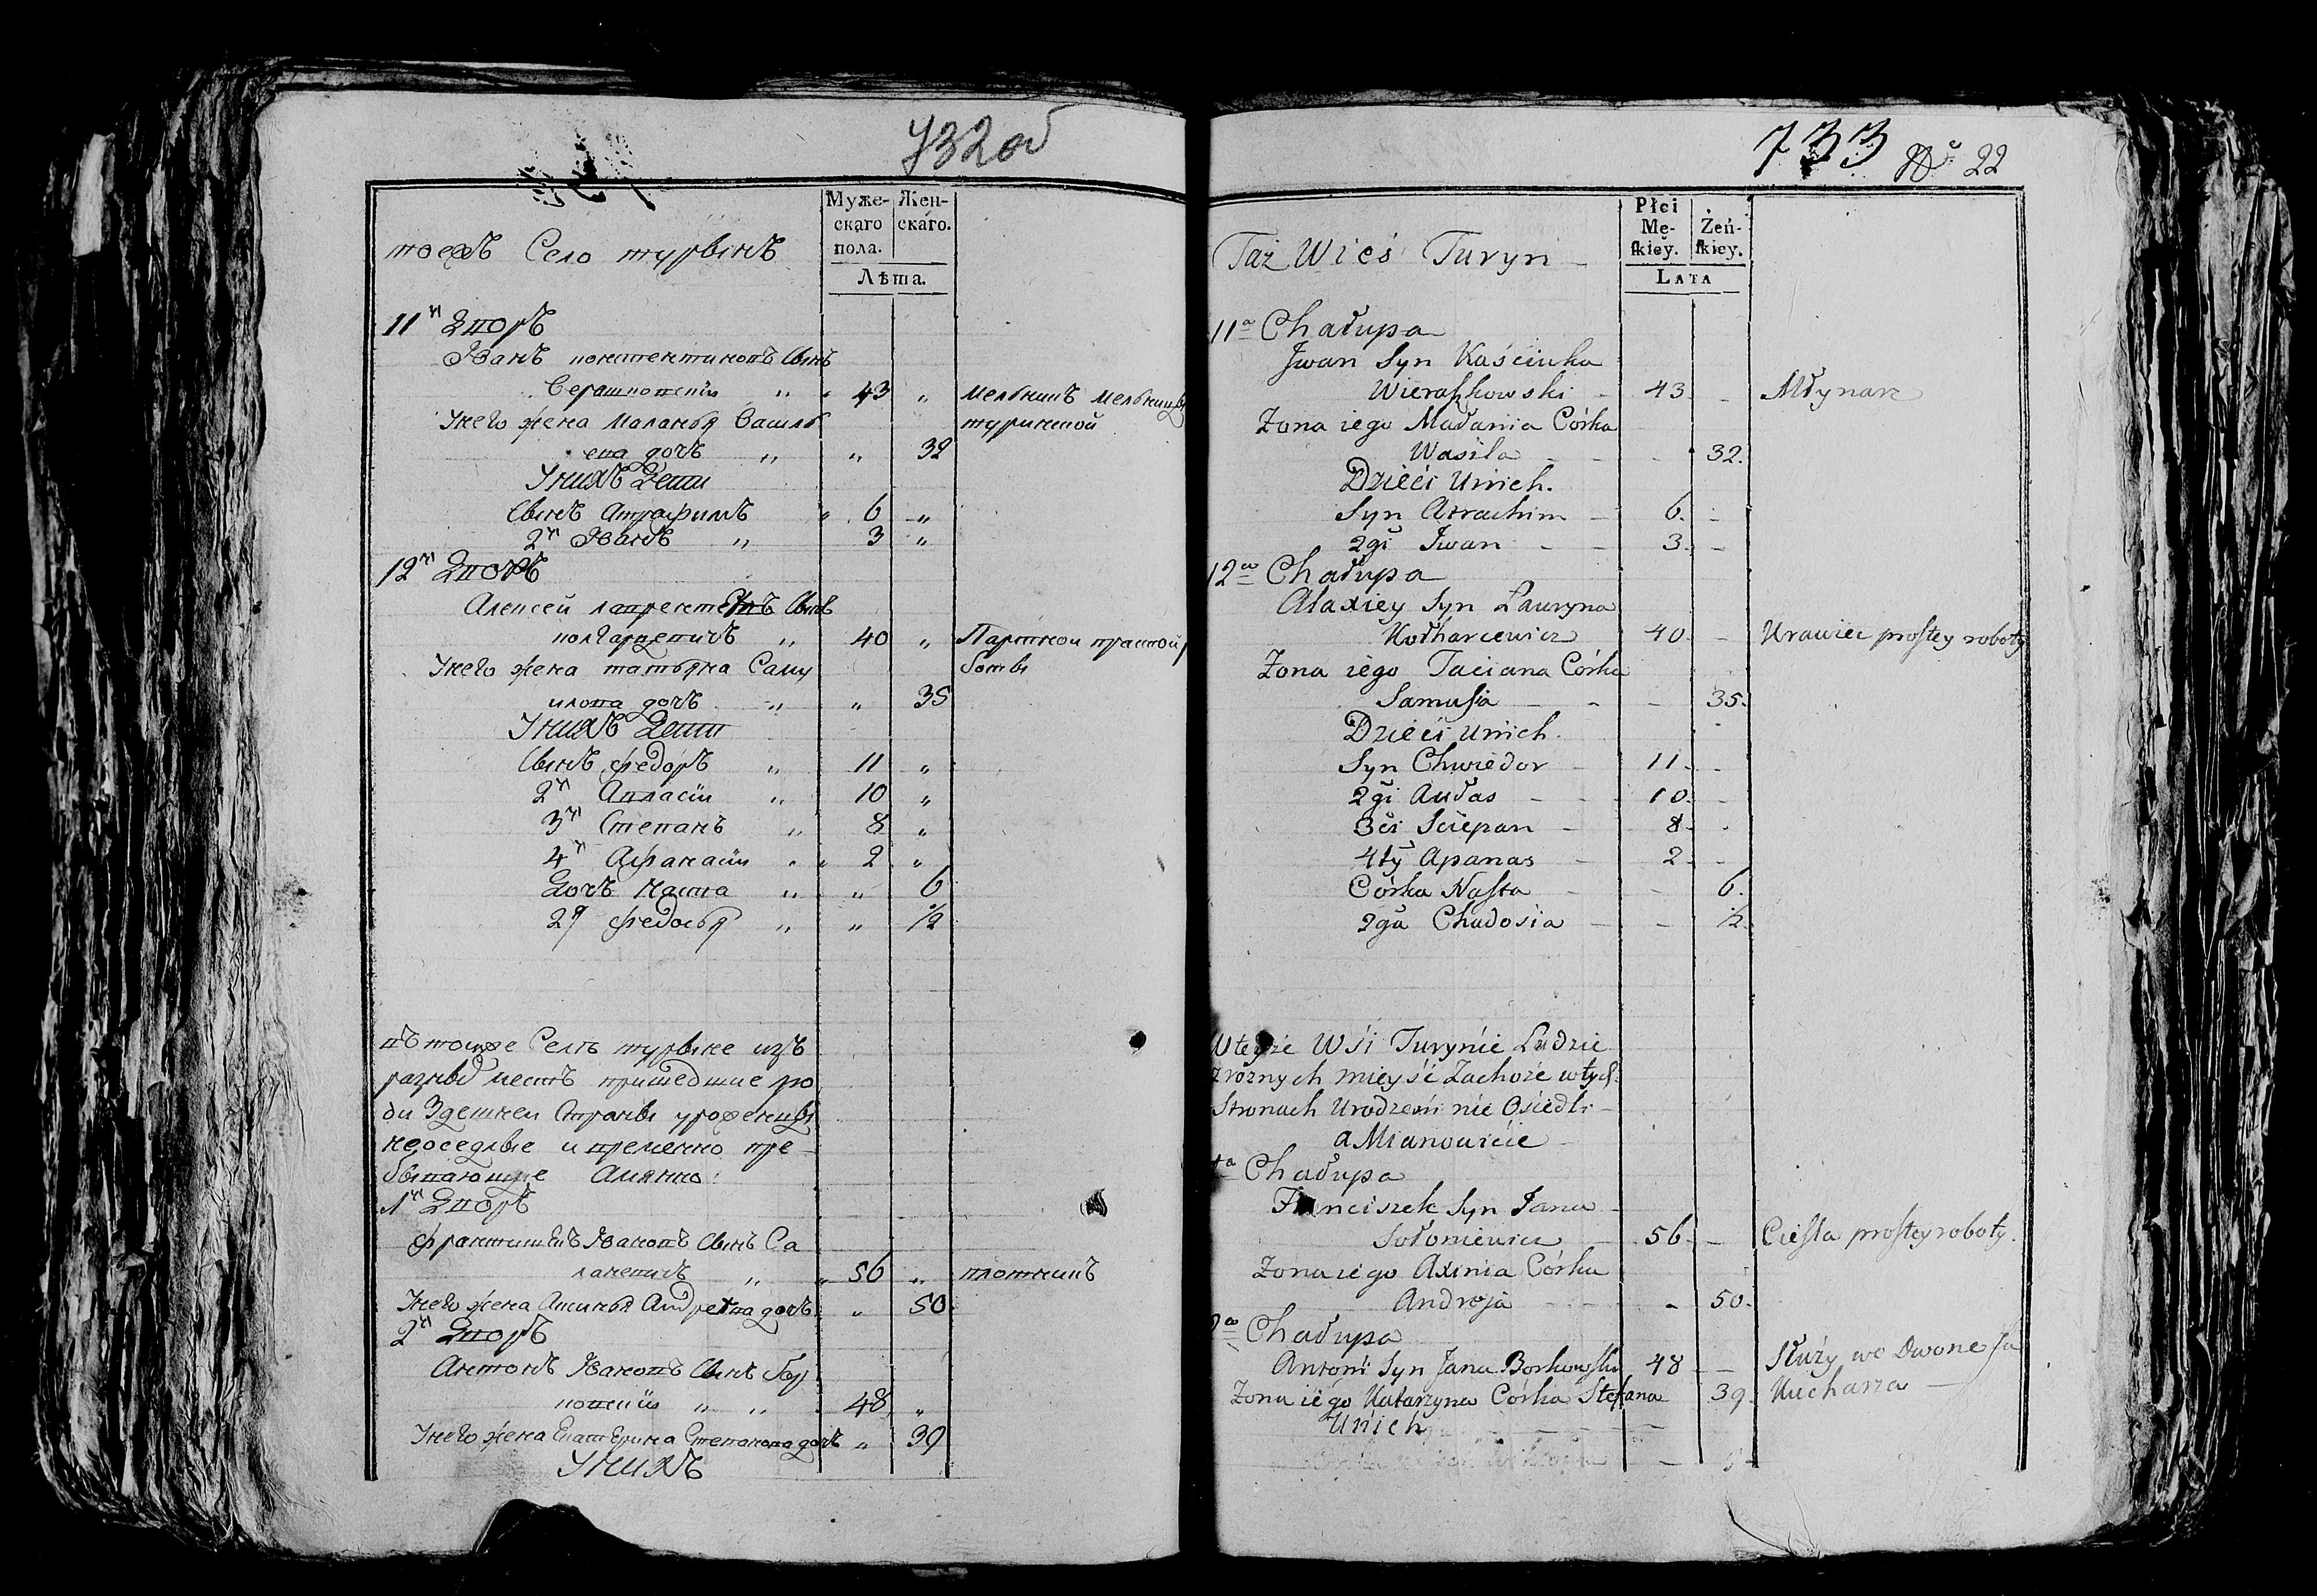 732 об
Муже-
скаго
пола.
Жен-
скаго.
Лѣта.
тоежъ Село турынъ
11й Дворъ
Иванъ констентиновъ Сынъ
Верашковскiй " " 43 "
мельникъ мельницы
туринской
У него жена маланья Василь
ева дочь " " 32
У нихъ Дети
Сынъ Атрафимъ " 6 "
2й Иванъ " 3 "
12й Дворъ
Алексей лаврентевъ Сынъ
колгарцевичъ " 40 "
Партной прастой
боты
У него жена татьяна Саму
илова дочь " " 35
У нихъ Дети
Сынъ федоръ " 11 "
2й Авласiй " 10 "
3й Степанъ " 8 "
4й Афанасiй " " 2 "
Дочь наста " " 6
2я федосья " " 1/2
въ тойже Селѣ турыне изъ
разныхъ местъ пришедшие ро
ди Здешней Страны уроженцы
неоседлые и временно пре-
бывающие Аменно:
1й Дворъ
францишекъ Ивановъ Сынъ Са
ланевичъ " " 56 " плотникъ
У него жена Аксинья Андреева дочь. " 50
2й Дворъ
Антонъ Ивановъ Сынъ Бур
ковскiй " " 48 "
У него жена Екатерина Степанова дочь " 39
У нихъ
733 No 22
Płci
Mę-
skiey.
Żeń-
skiey.
LATA
Taż Wieś Turyn
11a Chałupa
Jwan Syn Kaściuka
Wieraszkowski - 43 - Młynarz
Zona iego Małania Córka
Wasila - - - 32.
Dzieći Unich.
Syn Atrachim - 6. -
2gi Jwan - - 3. -
12a Chałupa
Alaxiey Syn Lauryna
Kołharcewicz 40 - Krawiec prostey roboty
Zona iego Taciana Córka
Samusia - - - 35.
Dzieći Unich.
Syn Chwiedor - 11. -
2gi Aułas - - - 10. -
3ci Sciepan - 8. -
4ty Apanas - 2. -
Córka Nasta - - 6.
2ga Chadosia - - 1/2.
Wteyże Wśi Turynie Ludzie
Zrożnych mieyść Zachoże wtych
Stronach Urodzeni nie Osiedli -
a Mianowićie -
1a Chałupa
Franciszek Syn Jana -
Sołoniewicz - 56. - Ciesla prostey roboty.
Zona iego Axinia Córka
Andreja - - - 50.
2a Chałupa
Antoni Syn Jana Borkowski 48 - Służy we Dworze za
Zona iego Katarzyna Corka Stefana 39. Kucharza -
Unich - - - -